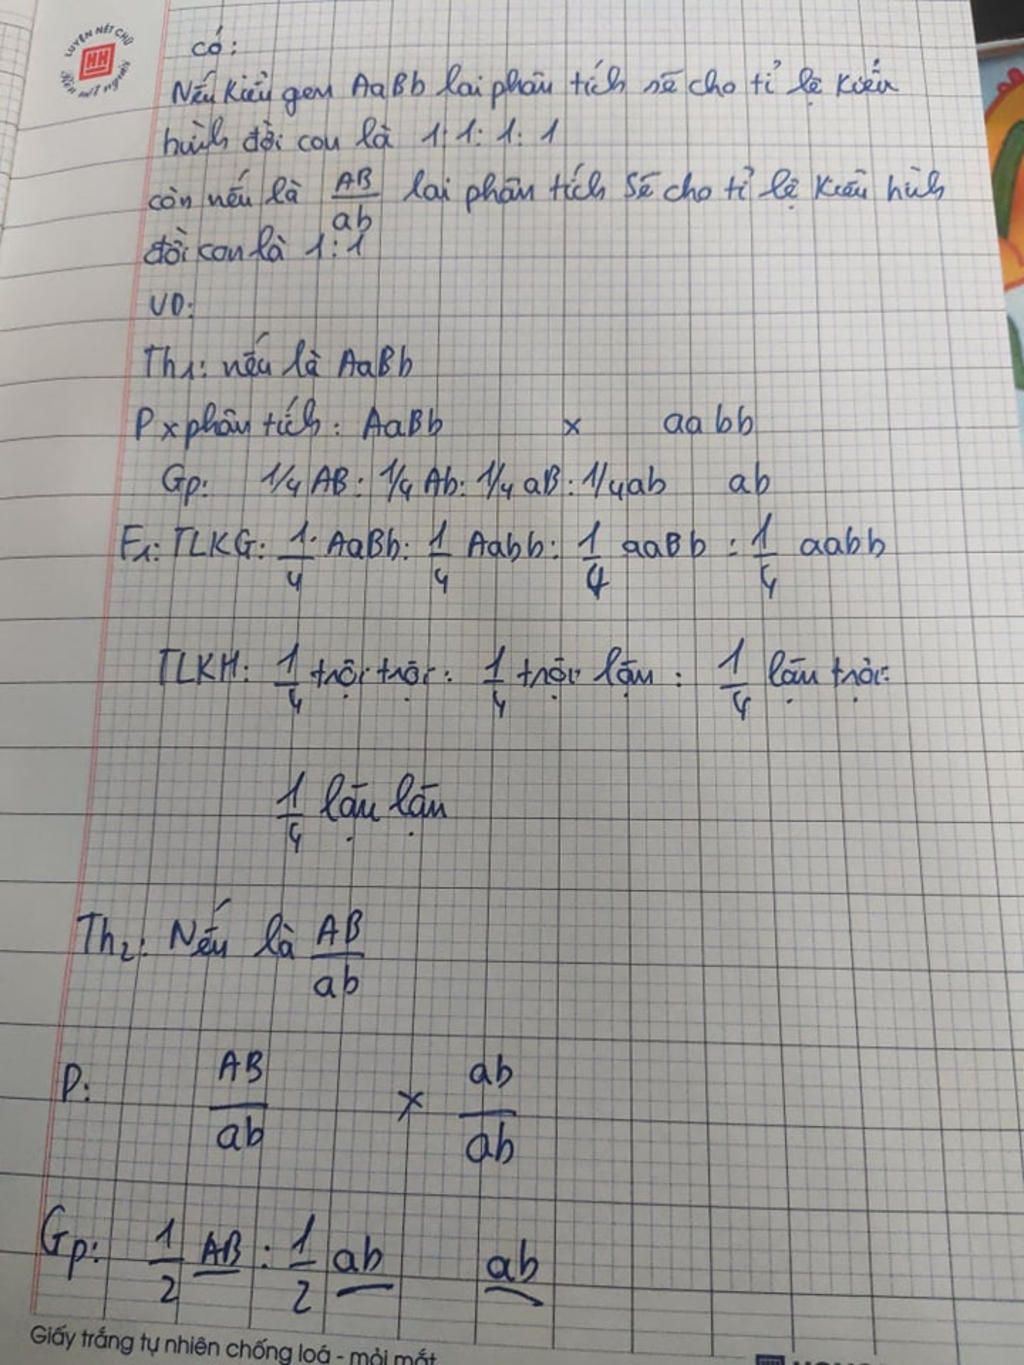 LUYỆN NÉT CHỮ
HH
Rèn nết người
có:
Nếu kiểu gen AaBb lai phân tích sẽ cho tỉ lệ kiểu
hình đời con là 1:1:1:1
còn nếu là AB/ab lai phân tích sẽ cho tỉ lệ kiểu hình
đời con là 1:1
VD:
Th1: nếu là AaBb
P x phân tích: AaBb x aabb
Gp: 1/4 AB : 1/4 Ab : 1/4 aB : 1/4 ab ab
F1: TLKG: 1/4 AaBb : 1/4 Aabb : 1/4 aaBb : 1/4 aabb
TLKH: 1/4 trội trội : 1/4 trội lặn : 1/4 lặn trội:
1/4 lặn lặn
Th2: Nếu là AB/ab
P: AB/ab x ab/ab
Gp: 1/2 AB : 1/2 ab ab
Giấy trắng tự nhiên chống loá - mỏi mắt